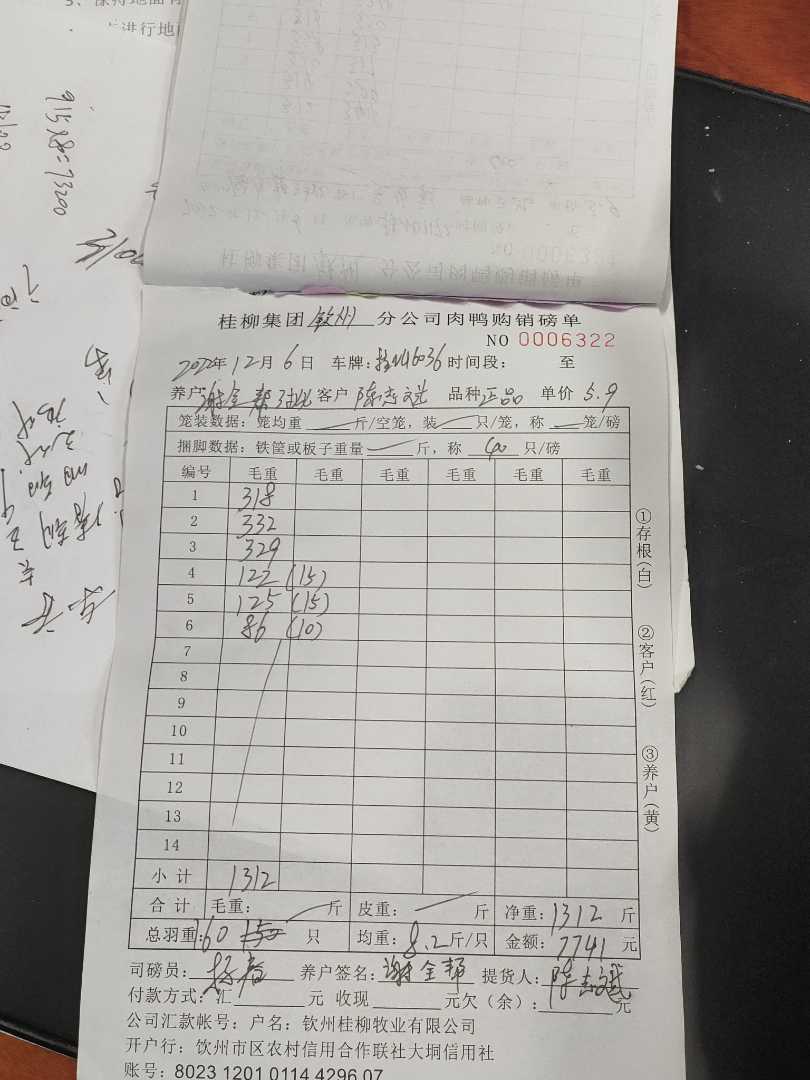 915×8=73200
桂柳集团 钦州 分公司肉鸭购销磅单
NO 0006322
2022年12月6日 车牌: 时间段: 至
养户: 谢金帮 客户 陈志斌 品种 正品 单价 5.9
笼装数据: 笼均重 斤/空笼, 装 只/笼, 称 笼/磅
捆脚数据: 铁筐或板子重量 斤, 称 40 只/磅
编号 毛重 毛重 毛重 毛重 毛重 毛重
1 318
2 332
3 329
4 122 (15)
5 125 (15)
6 86 (10)
7
8
9
10
11
12
13
14
小计 1312
合计 毛重: 斤 皮重: 斤 净重: 1312 斤
总羽重: 160 只 均重: 8.2 斤/只 金额: 7741 元
司磅员: 养户签名: 谢金帮 提货人: 陈志斌
付款方式: 汇 元 收现 元欠(余): 元
公司汇款帐号: 户名: 钦州桂柳牧业有限公司
开户行: 钦州市区农村信用合作联社大垌信用社
账号: 8023 1201 0114 4296 07
①存根(白)
②客户(红)
③养户(黄)